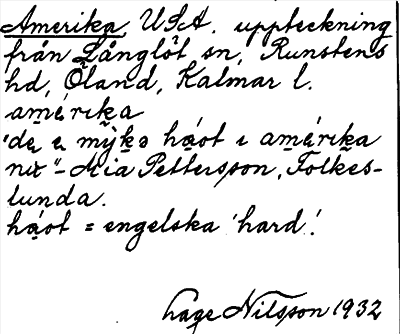 Amerika, U.S.A. uppteckning
från Långlöt sn, Runstens
hd, Öland, Kalmar l.
amérika
'de e mykə håot ı amérika
nu" - Mia Pettersson, Folkes-
lunda.
håot = engelska 'hard'.
Hage Nilsson 1932